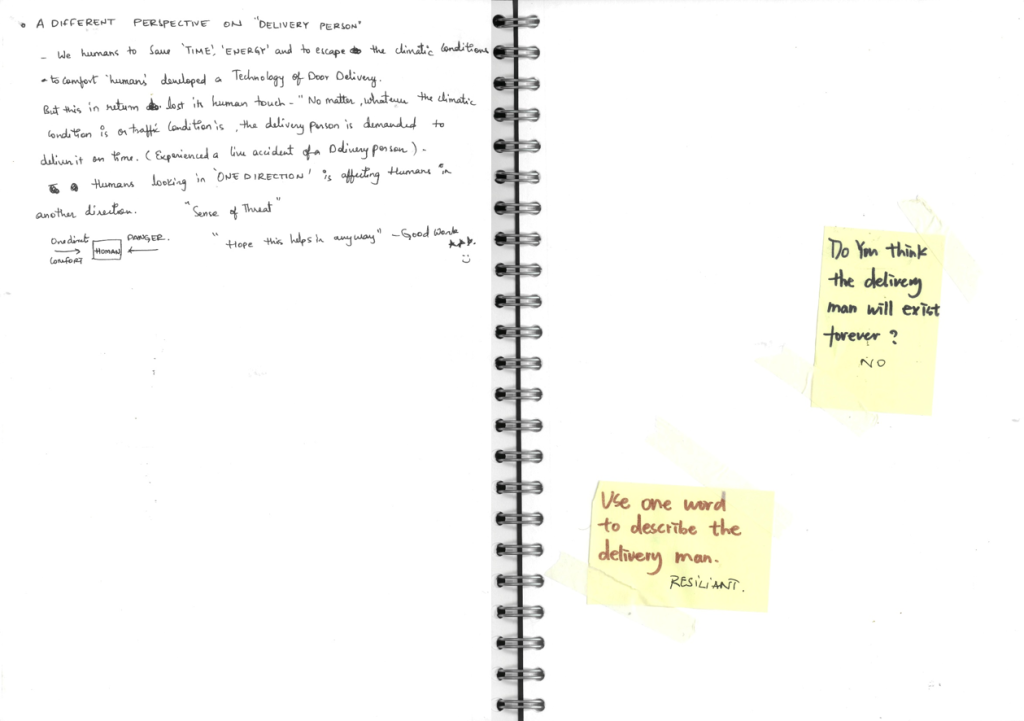 • A DIFFERENT PERSPECTIVE ON "DELIVERY PERSON"
- We humans to save 'TIME', 'ENERGY' and to escape the climatic conditions
- to comfort 'humans' developed a Technology of Door Delivery.
But this in return lost its human touch - "No matter, whatever the climatic
condition is or traffic condition is, the delivery person is demanded to
deliver it on time. (Experienced a live accident of a Delivery person) -
Humans looking in 'ONE DIRECTION' is affecting Humans in
another direction. "Sense of Threat"
One direct
COMFORT
HUMAN
DANGER.
"Hope this helps in anyway" - Good Work
Do You think
the delivery
man will exist
forever?
NO
Use one word
to describe the
delivery man.
RESILIANT.